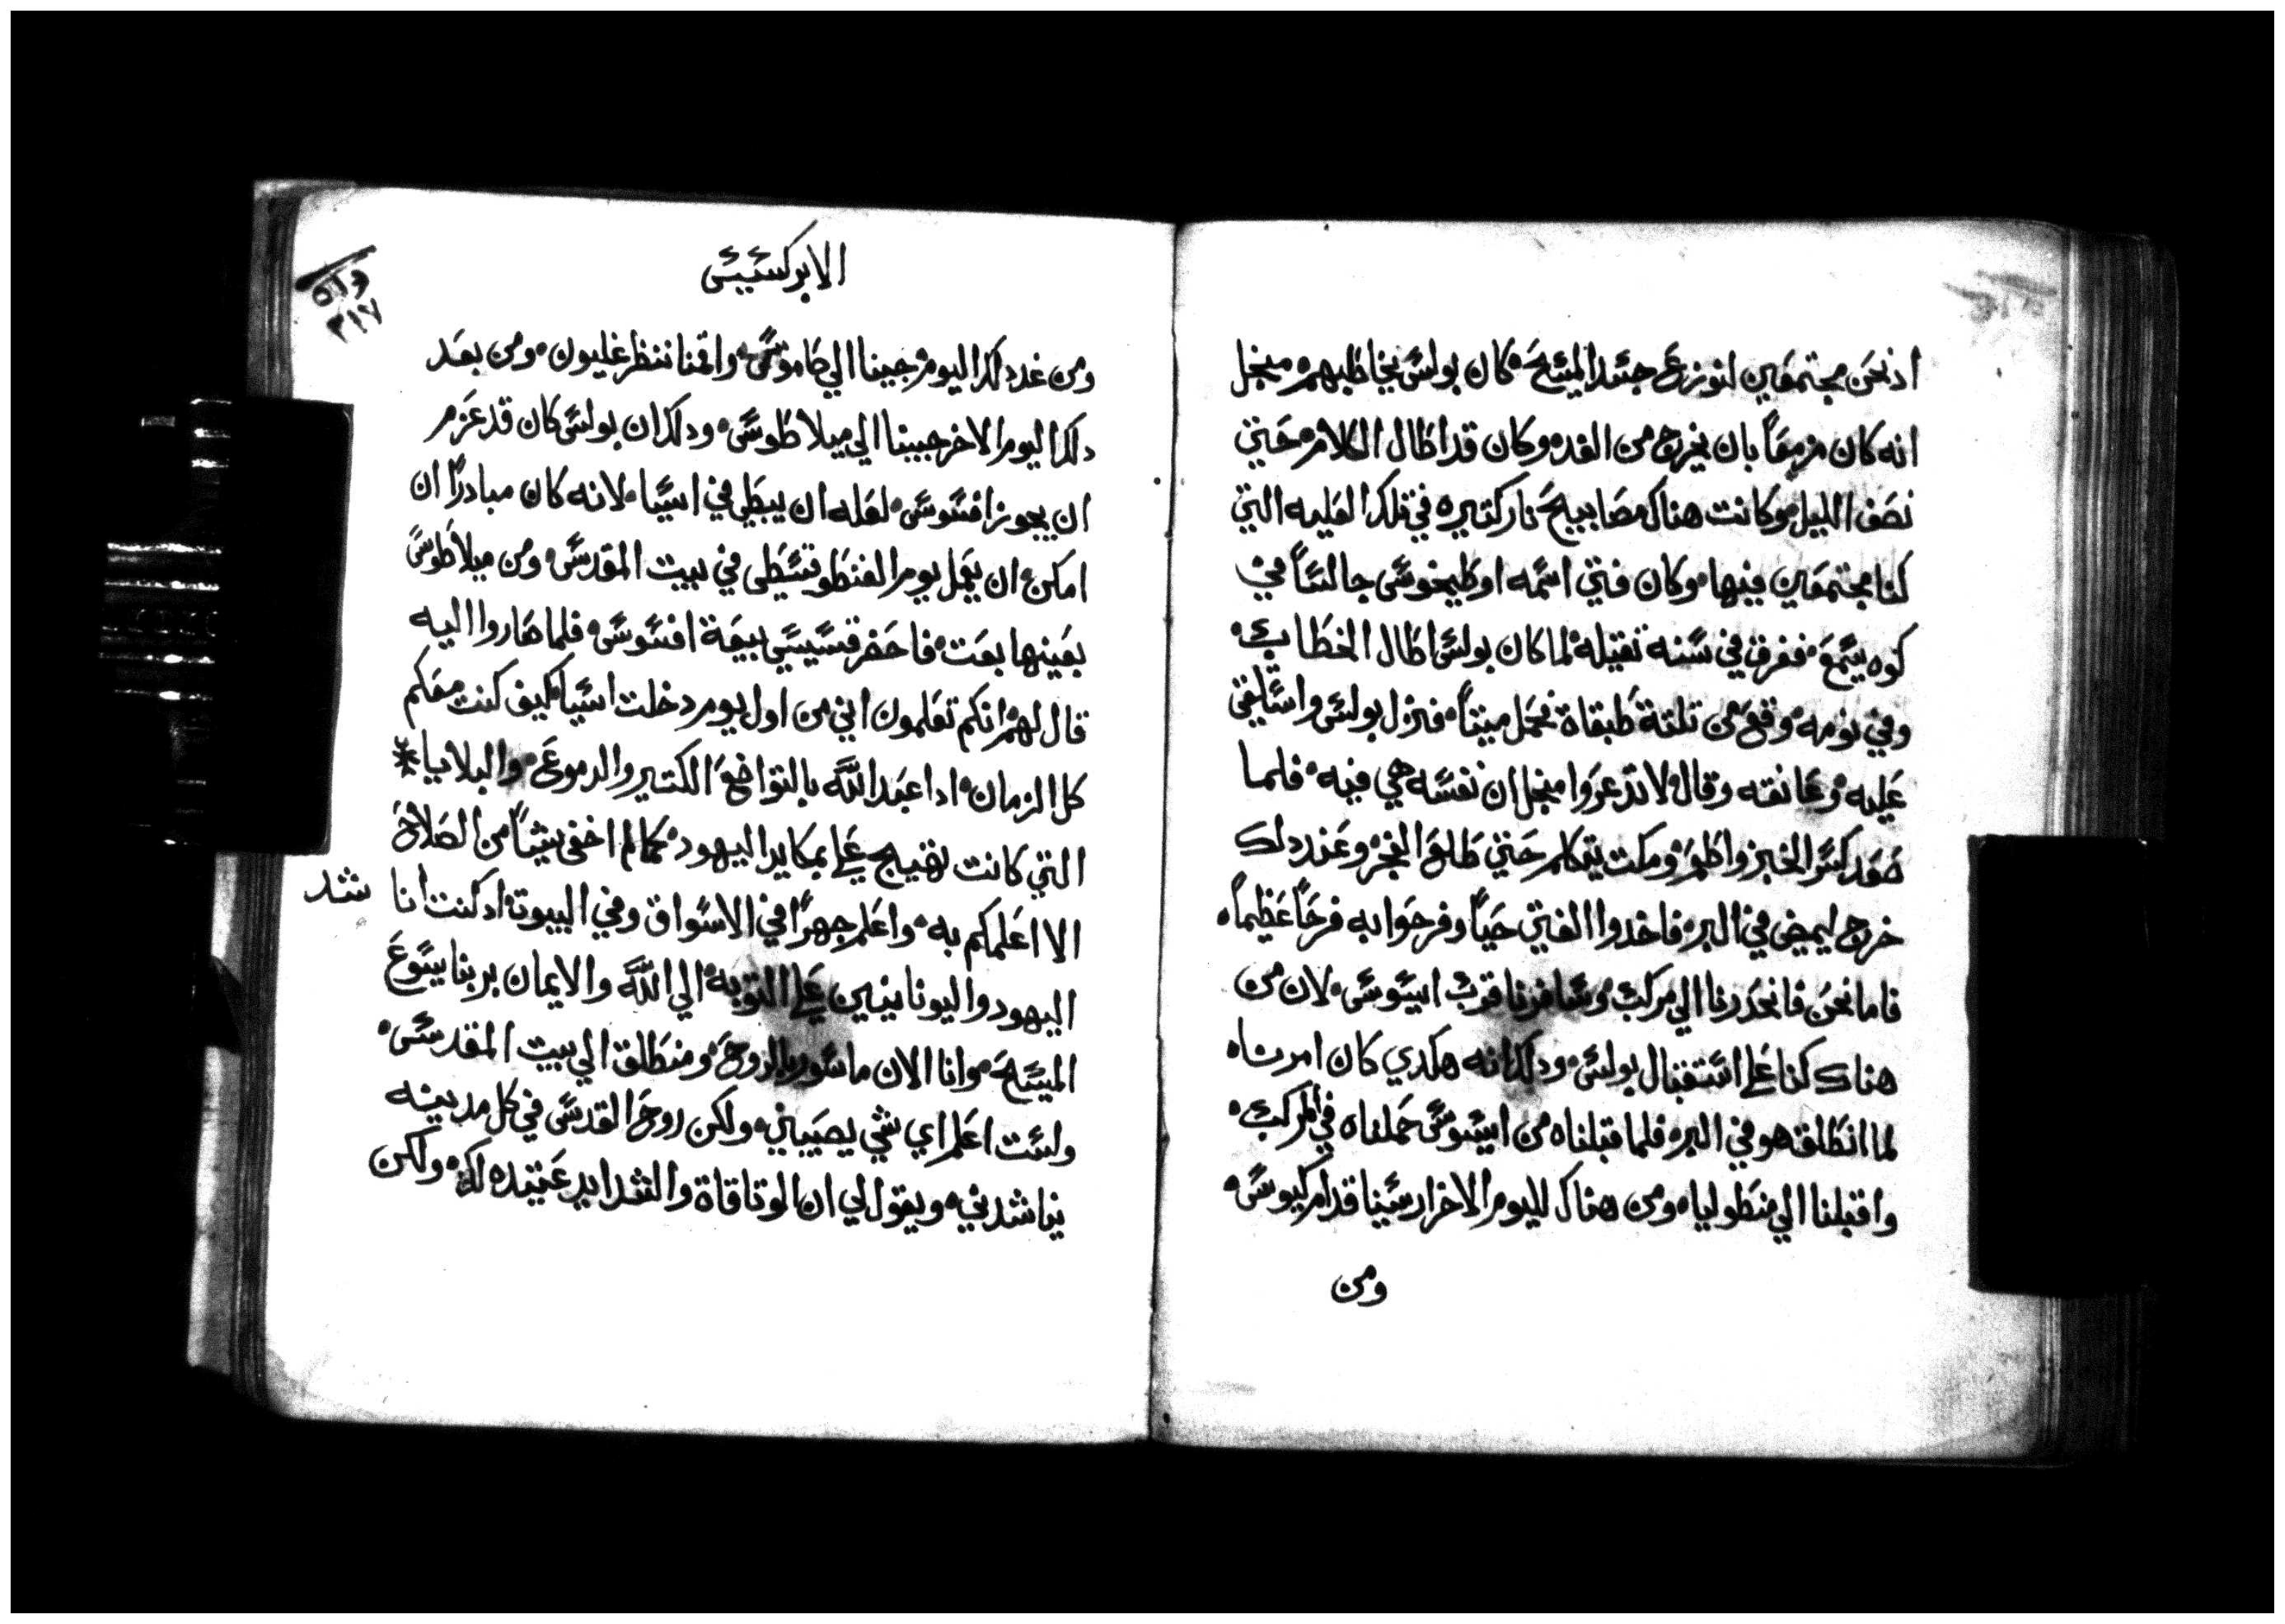 اذ نحن مجتمعين لنوزع جسد المسيح كان بولس يخاطبهم منجل
انه كان مزمعاً بان يخرج من الغد وكان قد اطال الكلام حتي
نصف الليل وكانت هناك مصابيح نار كتيره في تلك العليه التي
كنا مجتمعين فيها وكان فتي اسمه اوطيخوس جالساً في
كوه يسمع فغرق في سنه تقيله لما كان بولس اطال الخطاب
وفي نومه وقع من تلتة طبقاة فحمل ميتاً فنزل بولس واستلقي
عليه وعانقه وقال لا تدعروا منجل ان نفسه هي فيه فلما
صعد كسر الخبز واطعم ومكت يتكلم حتي طلع الفجر وعند دلك
خرج ليمضي في البر فاخدوا الفتي حياً وفرحوا به فرحاً عظيماً
فاما نحن فانحدرنا الي مركب وسافرنا قرب اسوس لان من
هناك كنا علي استقبال بولس ودلك انه هكدي كان امرنا
لما انطلق هو في البر فلما قبلناه من اسوس حملناه في المركب
واقبلنا الي منطوليا ومن هناك لليوم الاخر ارسينا قدام كيوس
ومن
الابركسيس
٢١٧
ومن غد دلك اليوم جينا الي صاموس واقمنا ننظر غليون ومن بعد
دلك اليوم الاخر جينا الي ميلاطوس ودلك ان بولس كان قد عزم
ان يجوز افسوس لعله ان يبطي في اسيا لانه كان مبادرًا ان
امكن ان يعمل يوم الفنطوقسطي في بيت المقدس ومن ميلاطوس
بعينها بعت فاحضر قسيسي بيعة افسوس فلما صاروا اليه
قال لهم انكم تعلمون اني من اول يوم دخلت اسيا كيف كنت معكم
كل الزمان ادا عبد الله بالتواضع الكتير والدموع والبلايا
التي كانت تهيج علي بمكايد اليهود كما لم اخفي شياً من الصلاح
الا اعلمكم به واعلم جهرًا في الاسواق وفي البيوت اد كنت انا شد
اليهود واليونانيين علي التوبه الي الله والايمان بربنا يسوع
المسيح وانا الان ماسور بالروح ومنطلق الي بيت المقدس
ولست اعلم اي شي يصيبني ولكن روح القدس في كل مدينه
يناشدني ويقول لي ان الوتاقاة والشدايد عتيده لك ولكن